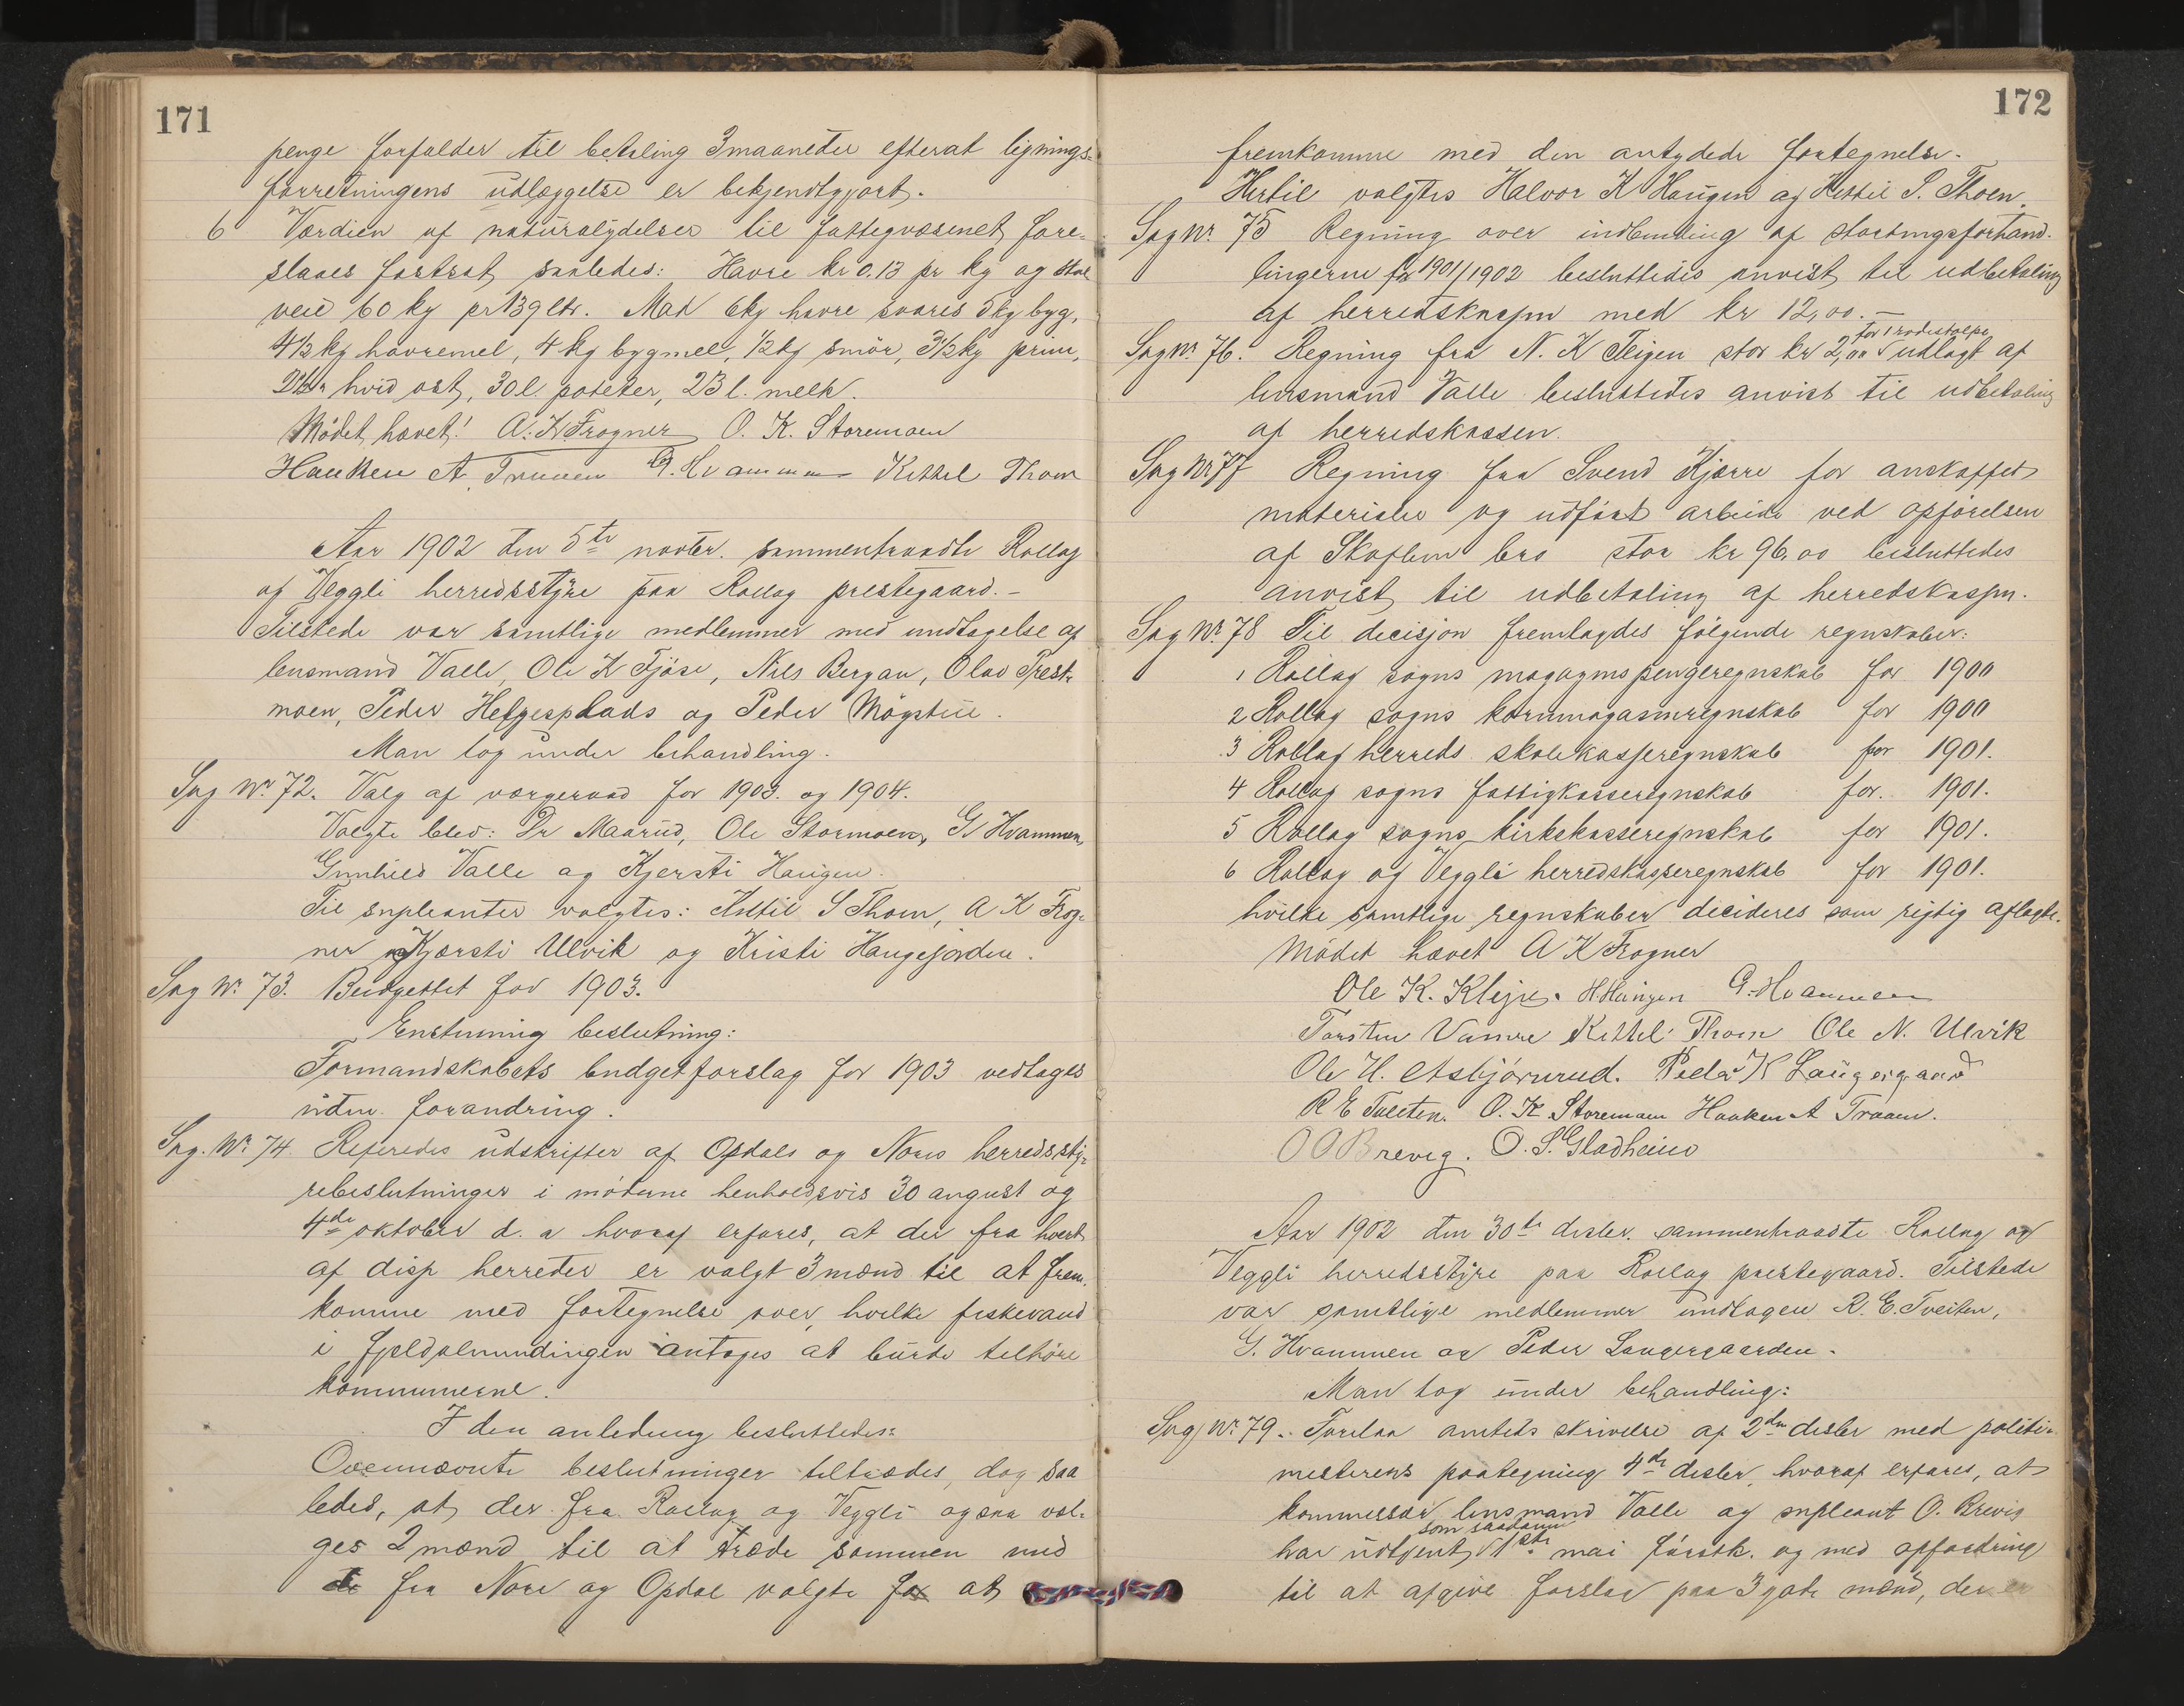 171
penge forfalder til betaling 3 maaneder efterat lignings-
forretningens udlæggelse er bekjendtgjort.
6 Værdien af naturalydelser til fattigvæsenet fore-
slaaes fortsat saaledes: Havre kr 0.13 pr kg og skal
veie 60 kg pr 139 ltr. Mod 6 kg havre svares 5 kg byg,
4 1/2 kg havremel, 4 kg bygmel, 1/2 kg smör, 3 1/2 kg prim,
hvid ost, 30 l. poteter, 23 l. melk.
Mödet hævet! A. K. Frogner O. K. Storemoen
Haaken A. Traaen G. Hvammen Kittil Thoen
Aar 1902 den 5te novbr. sammentraadte Rollag
og Veggli herredsstyre paa Rollag prestegaard. -
Tilstede var samtlige medlemmer med undtagelse af
lensmand Valle, Ole K Fjöse, Nils Bergan, Olav Prest-
moen, Peder Helgesplads og Peder Mögstue.
Man tog under behandling.
Sag Nr. 72. Valg af vergeraad for 1903. og 1904.
Valgte blev: Dr Maarud, Ole Stormoen, G Hvammen,
Gunhild Valle og Kjersti Haugen.
Til supleanter valgtes: Kittil S Thoen, A K Frog-
ner Kjersti Ulvik og Kristi Haugejorden.
Sag Nr. 73. Budgettet for 1903.
Enstemmig beslutning:
Formandskabets budgetforslag for 1903 vedtages
uden forandring.
Sag. Nr. 74 Refereres udskrifter af Opdals og Nores herredssty-
rebeslutninger i möderne henholdsvis 30 august og
4de oktober d. a hvoraf erfares, at der fra hvert
af disse herreder er valgt 3 mænd til at frem-
komme med fortegnelse over, hvilke fiskevand
i fjeldalmindingen antages at burde tilhöre
kommunerne.
I den anledning besluttedes:
Ovennævnte beslutninger tiltrædes, dog saa
ledes, at der fra Rollag og Veggli ogsaa væl-
ges 2 mænd til at træde sammen med
de fra Nore og Opdal valgte for at
172
fremkomme med den antydede fortegnelse.
Hertil valgtes Halvor K Haugen og Kittil S. Thoen.
Sag Nr. 75 Regning over indbinding af stortingsforhand-
lingerne for 1901/1902 besluttedes anvist til udbetaling
af herredskassen med kr 12,00. -
for 1 rodestolpe
Sag Nr. 76. Regning fra N. K Teigen stor kr 2,00 udlagt af
lensmand Valle besluttedes anvist til udbetaling
af herredskassen.
Sag Nr 77 Regning fra Svend Kjærre for anskaffet
materialer og udfört arbeide ved opförelsen
af Skoflem bro stor kr 96,00 besluttedes
anvist til udbetaling af herredskassen.
Sag Nr. 78 Til decisjon fremlagdes fölgende regnskaber:
1 Rollag sogns magazinspengeregnskab for 1900
2 Rollag sogns kornmagasinregnskab for 1900
3 Rollag herreds skolekasseregnskab for 1901.
4 Rollag sogns fattigkasseregnskab for. 1901.
5 Rollag sogns kirkekasseregnskab for 1901.
6 Rollag og Veggli herredskasseregnskab for 1901.
hvilke samtlige regnskaber decideres som rigtig aflagte.
Mödet hævet A K Frogner
Ole K. H. Haugen G. Hvammen
Torsten Kittil Thoen Ole N. Ulvik
Ole H. Asbjörnrud. Peder K Laugergaard
R E Tveiten. O. K. Storemoen Haaken A Traaen.
O O Brevig. O. S. Gladheim
Aar 1902 den 30te desbr. sammentraadte Rollag og
Veggli herredsstyre paa Rollag prestegaard. Tilstede
var samtlige medlemmer undtagen R. E. Tveiten,
G. Hvammen og Peder Laugergaarden.
Man tog under behandling:
Sag Nr. 79. Forelaa amtets skrivelse af 2den desbr med politi-
mesterens paategning 4de desbr, hvoraf erfares, at
kommissær, lensmand Valle og supleant O. Brevig
som saadanne
har udtjent 1ste mai förstk. og med opfordring
til at afgive forslag paa 3 gode mænd, der er